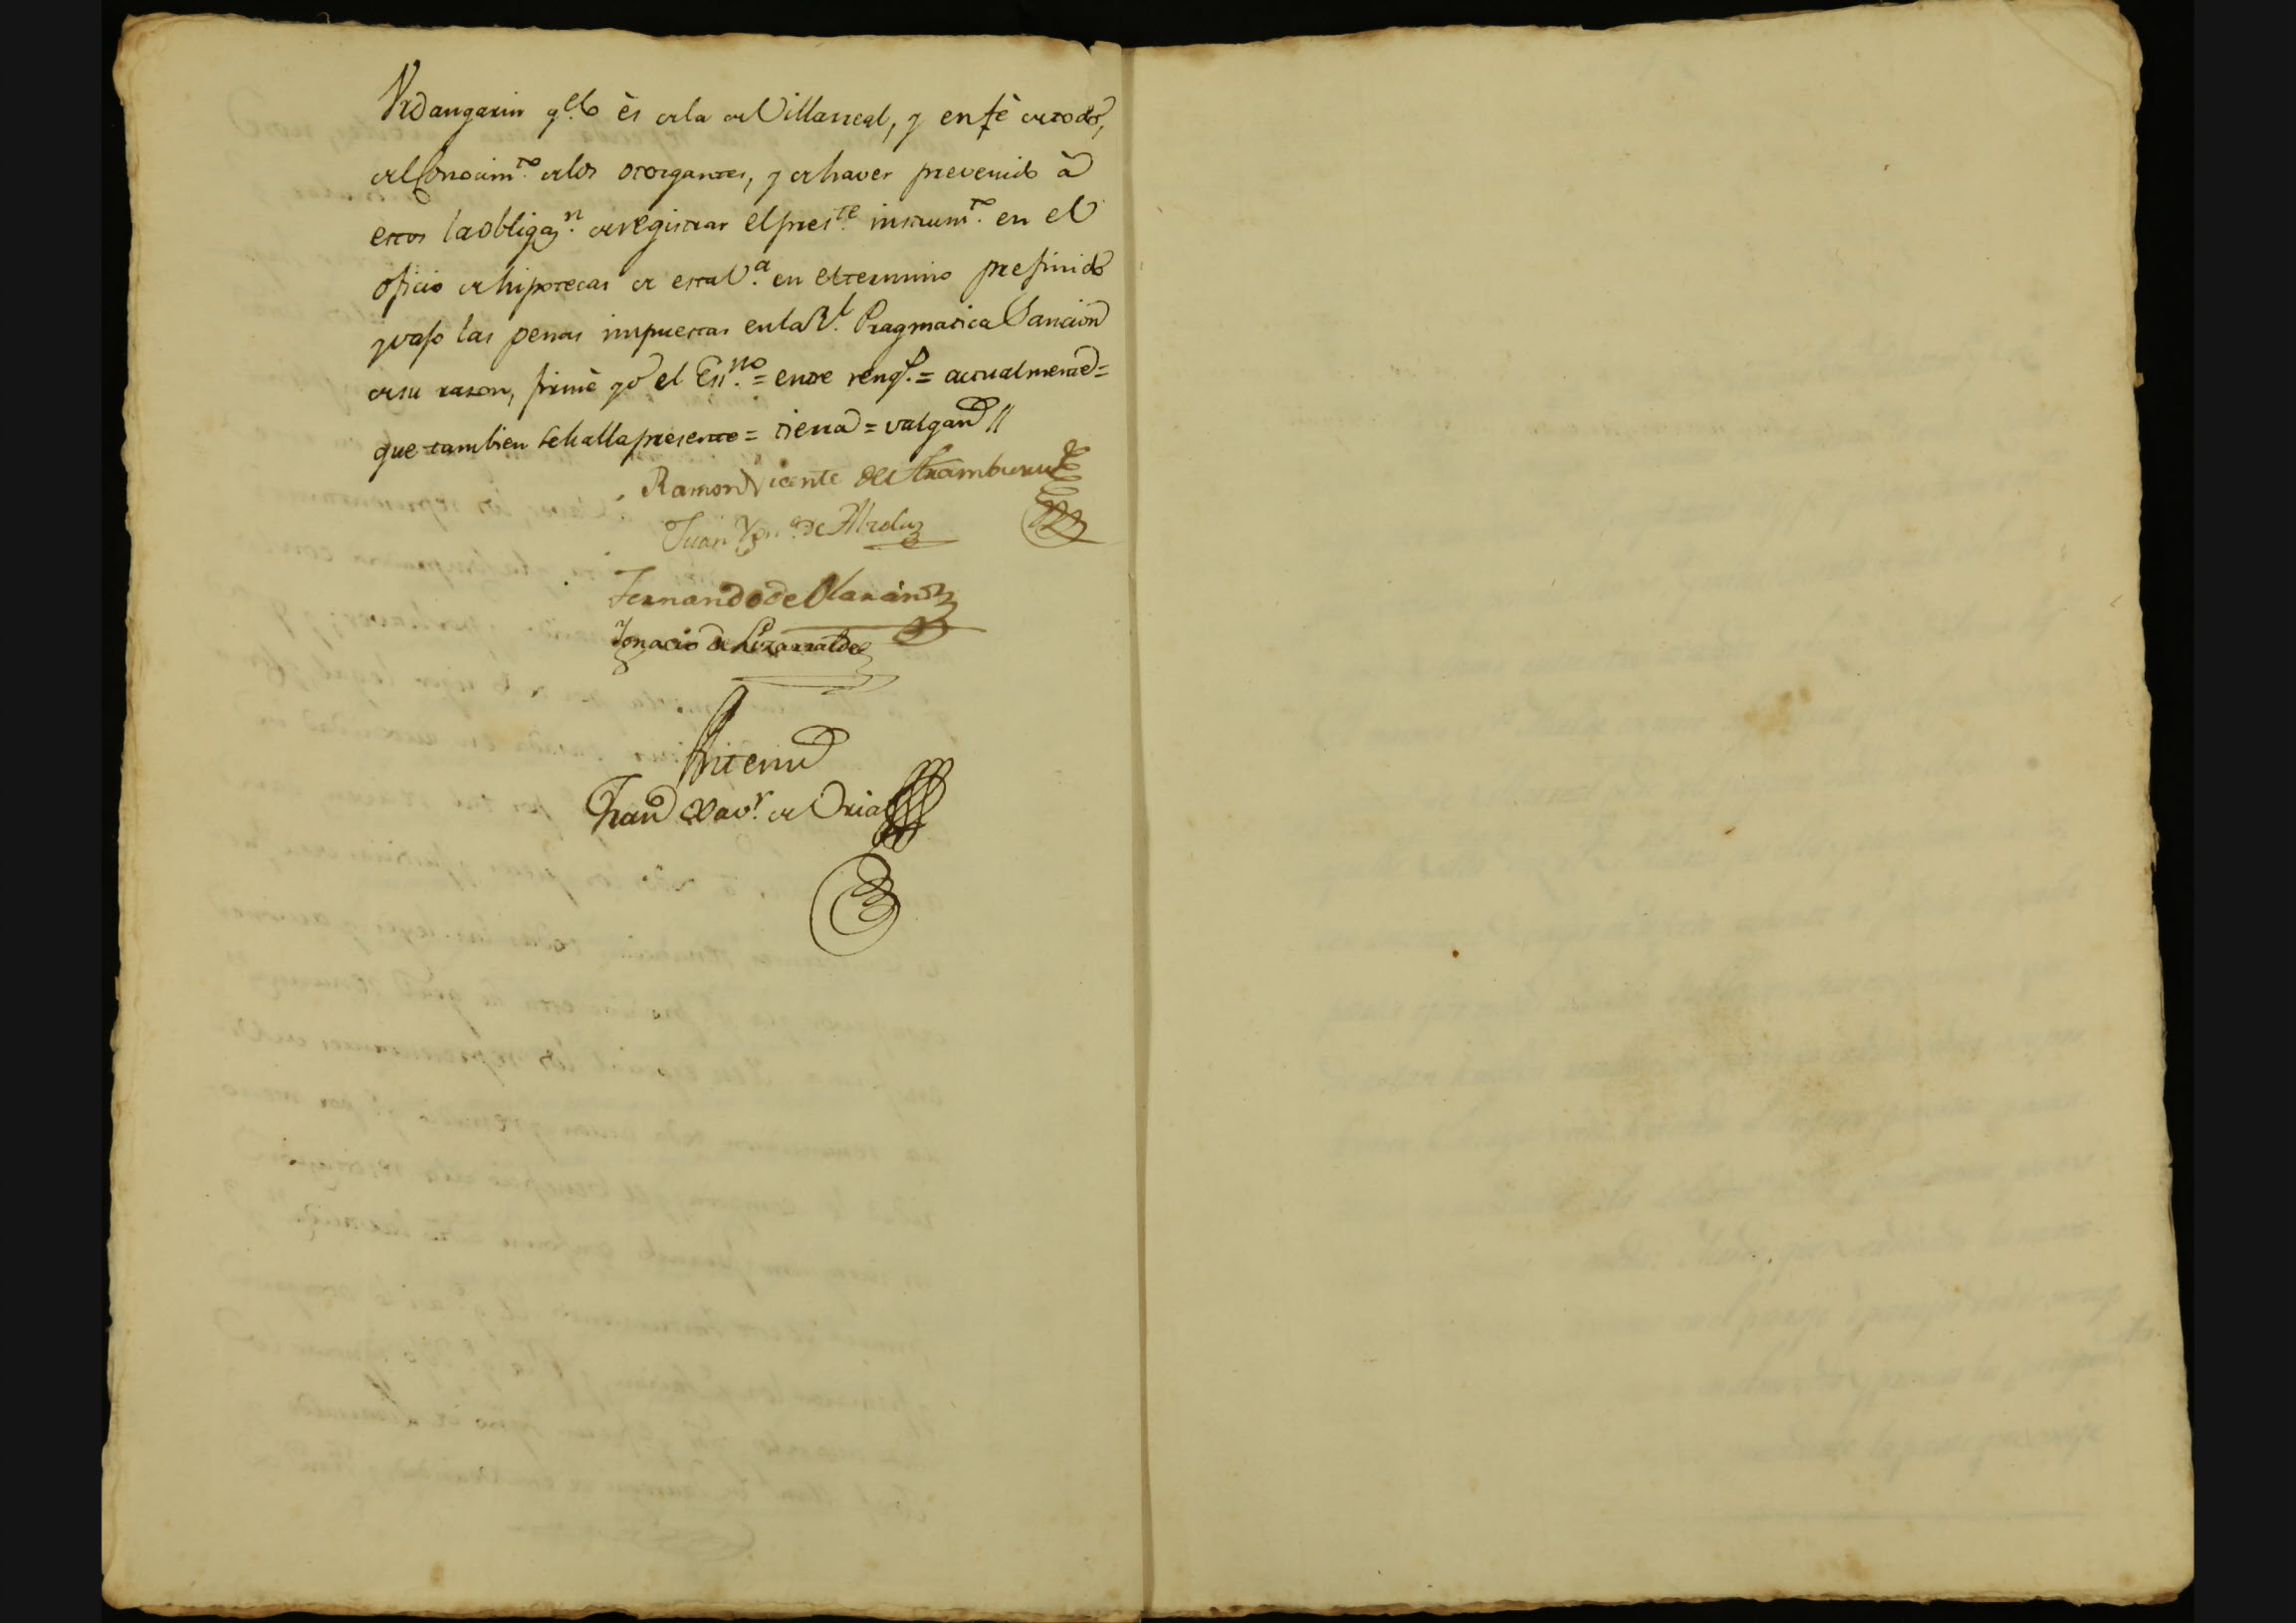 Urdangarin q.e lo és de la de Villarreal, y en fè de todo,
del Conocim.to de los otorgantes, y de haver prevenido à
estos la obligaz.n de registrar el pres.te instrum.to en el
oficio de hipotecas de esta V.a en el termino prefinido
y vajo las penas impuestas en la R.l Pragmatica Sancion
de su razon, firmè yo el Ess.no = entre reng.s = actualmente =
que tambien se halla presente = tierra = valgan //
Ramon Vicente de Aramburu
Juan Ygn.o de
Fernando de Olaran
Ignacio de Lizarralde
Ante mi
Fran.co Xav.r de Oria